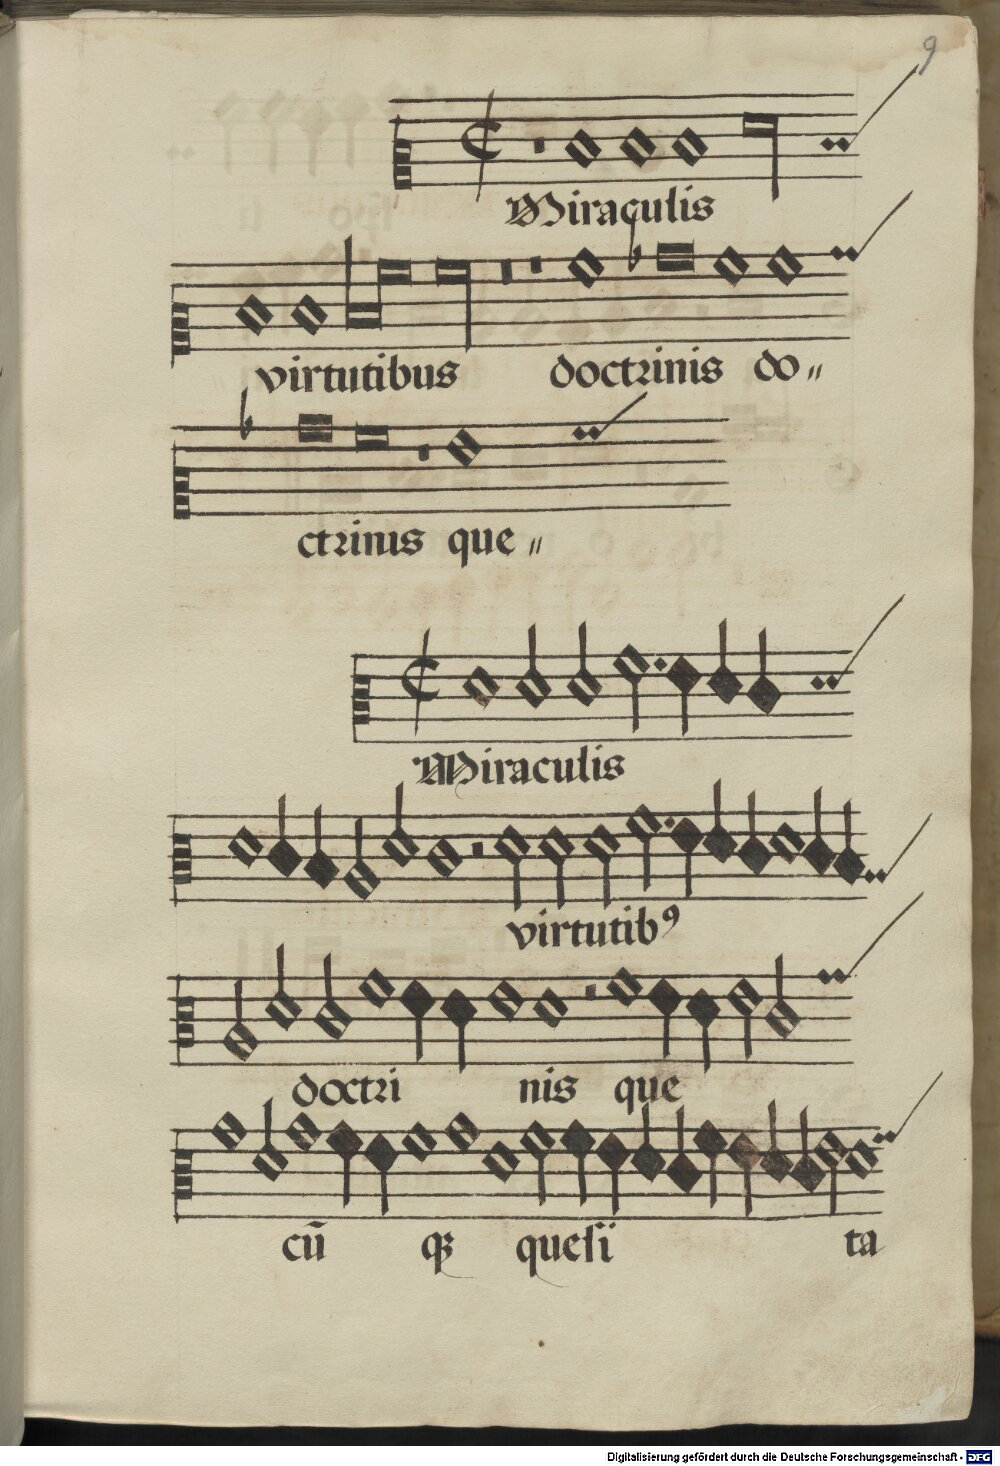 9
Miraculis
virtutibus doctrinis do〃
ctrinis que〃
Miraculis
virtutibꝰ
doctri nis que
cū qꝫ quesi ta
Digitalisierung gefördert durch die Deutsche Forschungsgemeinschaft - DFG